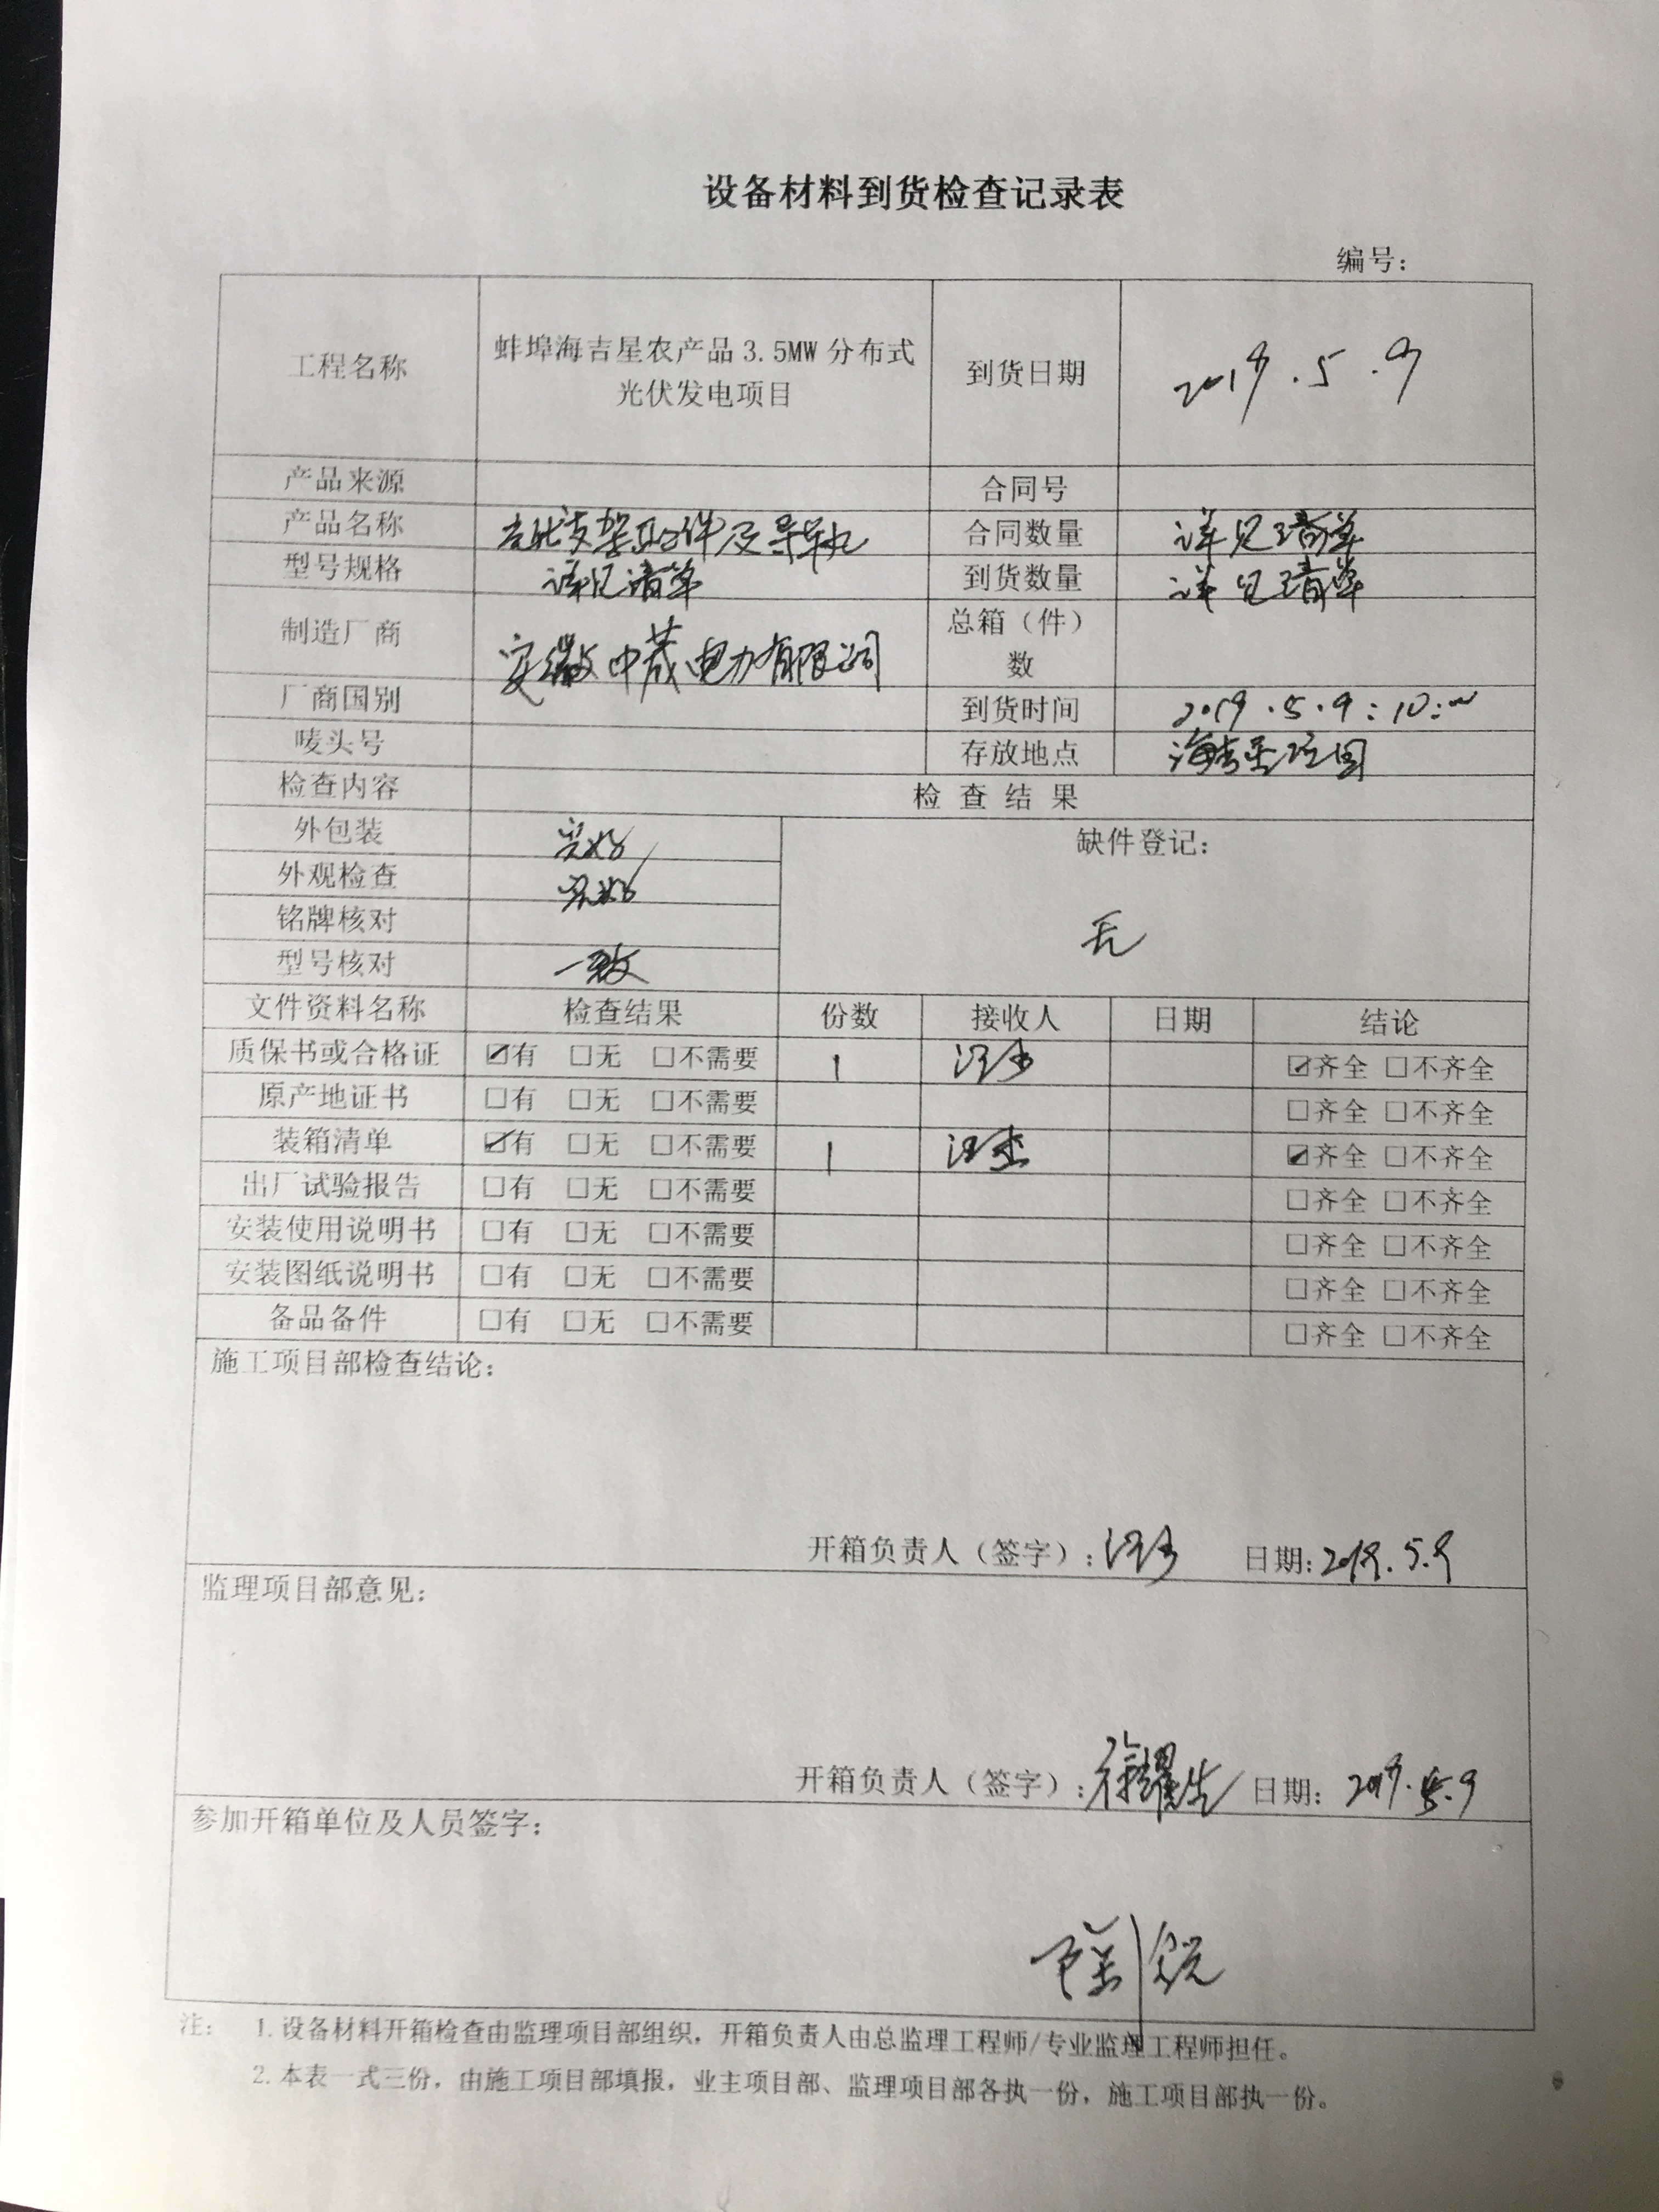 设备材料到货检查记录表
编号:
工程名称 蚌埠海吉星农产品3.5MW分布式光伏发电项目 到货日期 2019.5.9
产品来源 合同号
产品名称 支架配件及 合同数量 详见清单
型号规格 详见清单 到货数量 详见清单
制造厂商 安徽中晟电力有限公司 总箱(件)数
厂商国别 到货时间 2019.5.9:10:00
唛头号 存放地点 海吉星
检查内容 检查结果
外包装 完好 缺件登记:
外观检查 完好
铭牌核对 无
型号核对 一致
文件资料名称 检查结果 份数 接收人 日期 结论
质保书或合格证 ☑有 □无 □不需要 1 汪杰 ☑齐全 □不齐全
原产地证书 □有 □无 □不需要 □齐全 □不齐全
装箱清单 ☑有 □无 □不需要 1 汪杰 ☑齐全 □不齐全
出厂试验报告 □有 □无 □不需要 □齐全 □不齐全
安装使用说明书 □有 □无 □不需要 □齐全 □不齐全
安装图纸说明书 □有 □无 □不需要 □齐全 □不齐全
备品备件 □有 □无 □不需要 □齐全 □不齐全
施工项目部检查结论:
开箱负责人(签字):汪杰 日期:2019.5.9
监理项目部意见:
开箱负责人(签字):徐耀生 日期: 2019.5.9
参加开箱单位及人员签字:
注: 1.设备材料开箱检查由监理项目部组织,开箱负责人由总监理工程师/专业监理工程师担任。
2.本表一式三份,由施工项目部填报,业主项目部、监理项目部各执一份,施工项目部执一份。